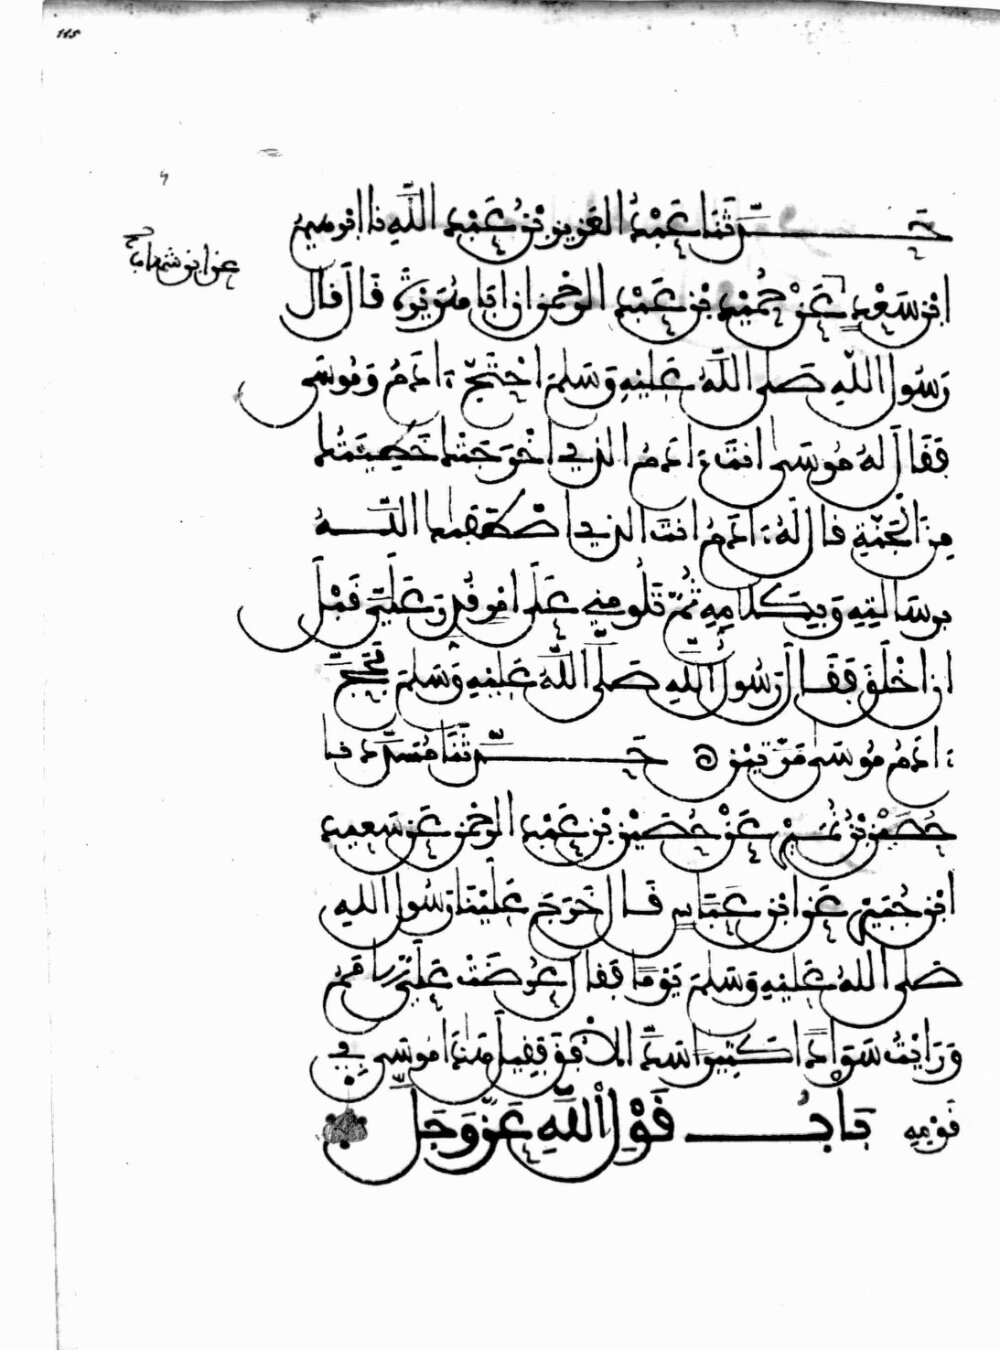 115
حَدَّثَنَا عَبْدُ الْعَزِيزِ بْنُ عَبْدِ اللَّهِ نا ابْرهيمُ
ابْنُ سَعْدٍ عَنْ حُمَيْدِ بْنِ عَبْدِ الرَّحْمنِ ان أَبَا هُرَيْرَةَ قَالَ قال
عن ابن شهاب صح
رَسُولُ اللَّهِ صَلى اللَّهُ عَلَيْهِ وَسَلمَ احْتَجَّ ءَادَمُ وَمُوسَى
فَقَالَ لَهُ مُوسَى انتَ ءَادَمُ الذي اخْرَجَتْكَ خَطِيئَتُكَ
مِنَ الْجَنَّةِ قال لَهُ ءَادَمُ انتَ الذي اصْطَفَاكَ اللَّهُ
بِرِسَالَتِهِ وَبِكَلَامِهِ ثُمَّ تَلُومُنِي عَلَى امْرٍ قُدِّرَ عَلَيَّ قَبْلَ
ان اخْلَقَ فَقَالَ رَسُولُ اللَّهِ صَلَّى اللَّهُ عَلَيْهِ وَسَلمَ فَحَجَّ
ءَادَمُ مُوسَى مَرَّتَيْنِ حَدَّثَنَا مُسَدَّدٌ نا
حُصَيْنُ بْنُ نُمَيْرٍ عَنْ حُصَيْنِ بْنِ عَبْدِ الرحْمنِ عَنْ سَعِيدِ
ابْنِ جُبَيْرٍ عَنِ ابْنِ عَبَّاسٍ قَالَ خَرَجَ عَلَيْنَا رَسُولُ اللهِ
صَلى اللهُ عَلَيْهِ وَسَلمَ يَوْمًا فَقَالَ عُرِضَتْ عَلَيَّ الامَمُ
وَرَايْتُ سَوَادًا كَثِيرًا سَدَّ الافُقَ فَقِيلَ هَذَا مُوسَى فِي
قَوْمِهِ بَابُ قَوْلِ اللَّهِ عَزَّ وَجَلَّ